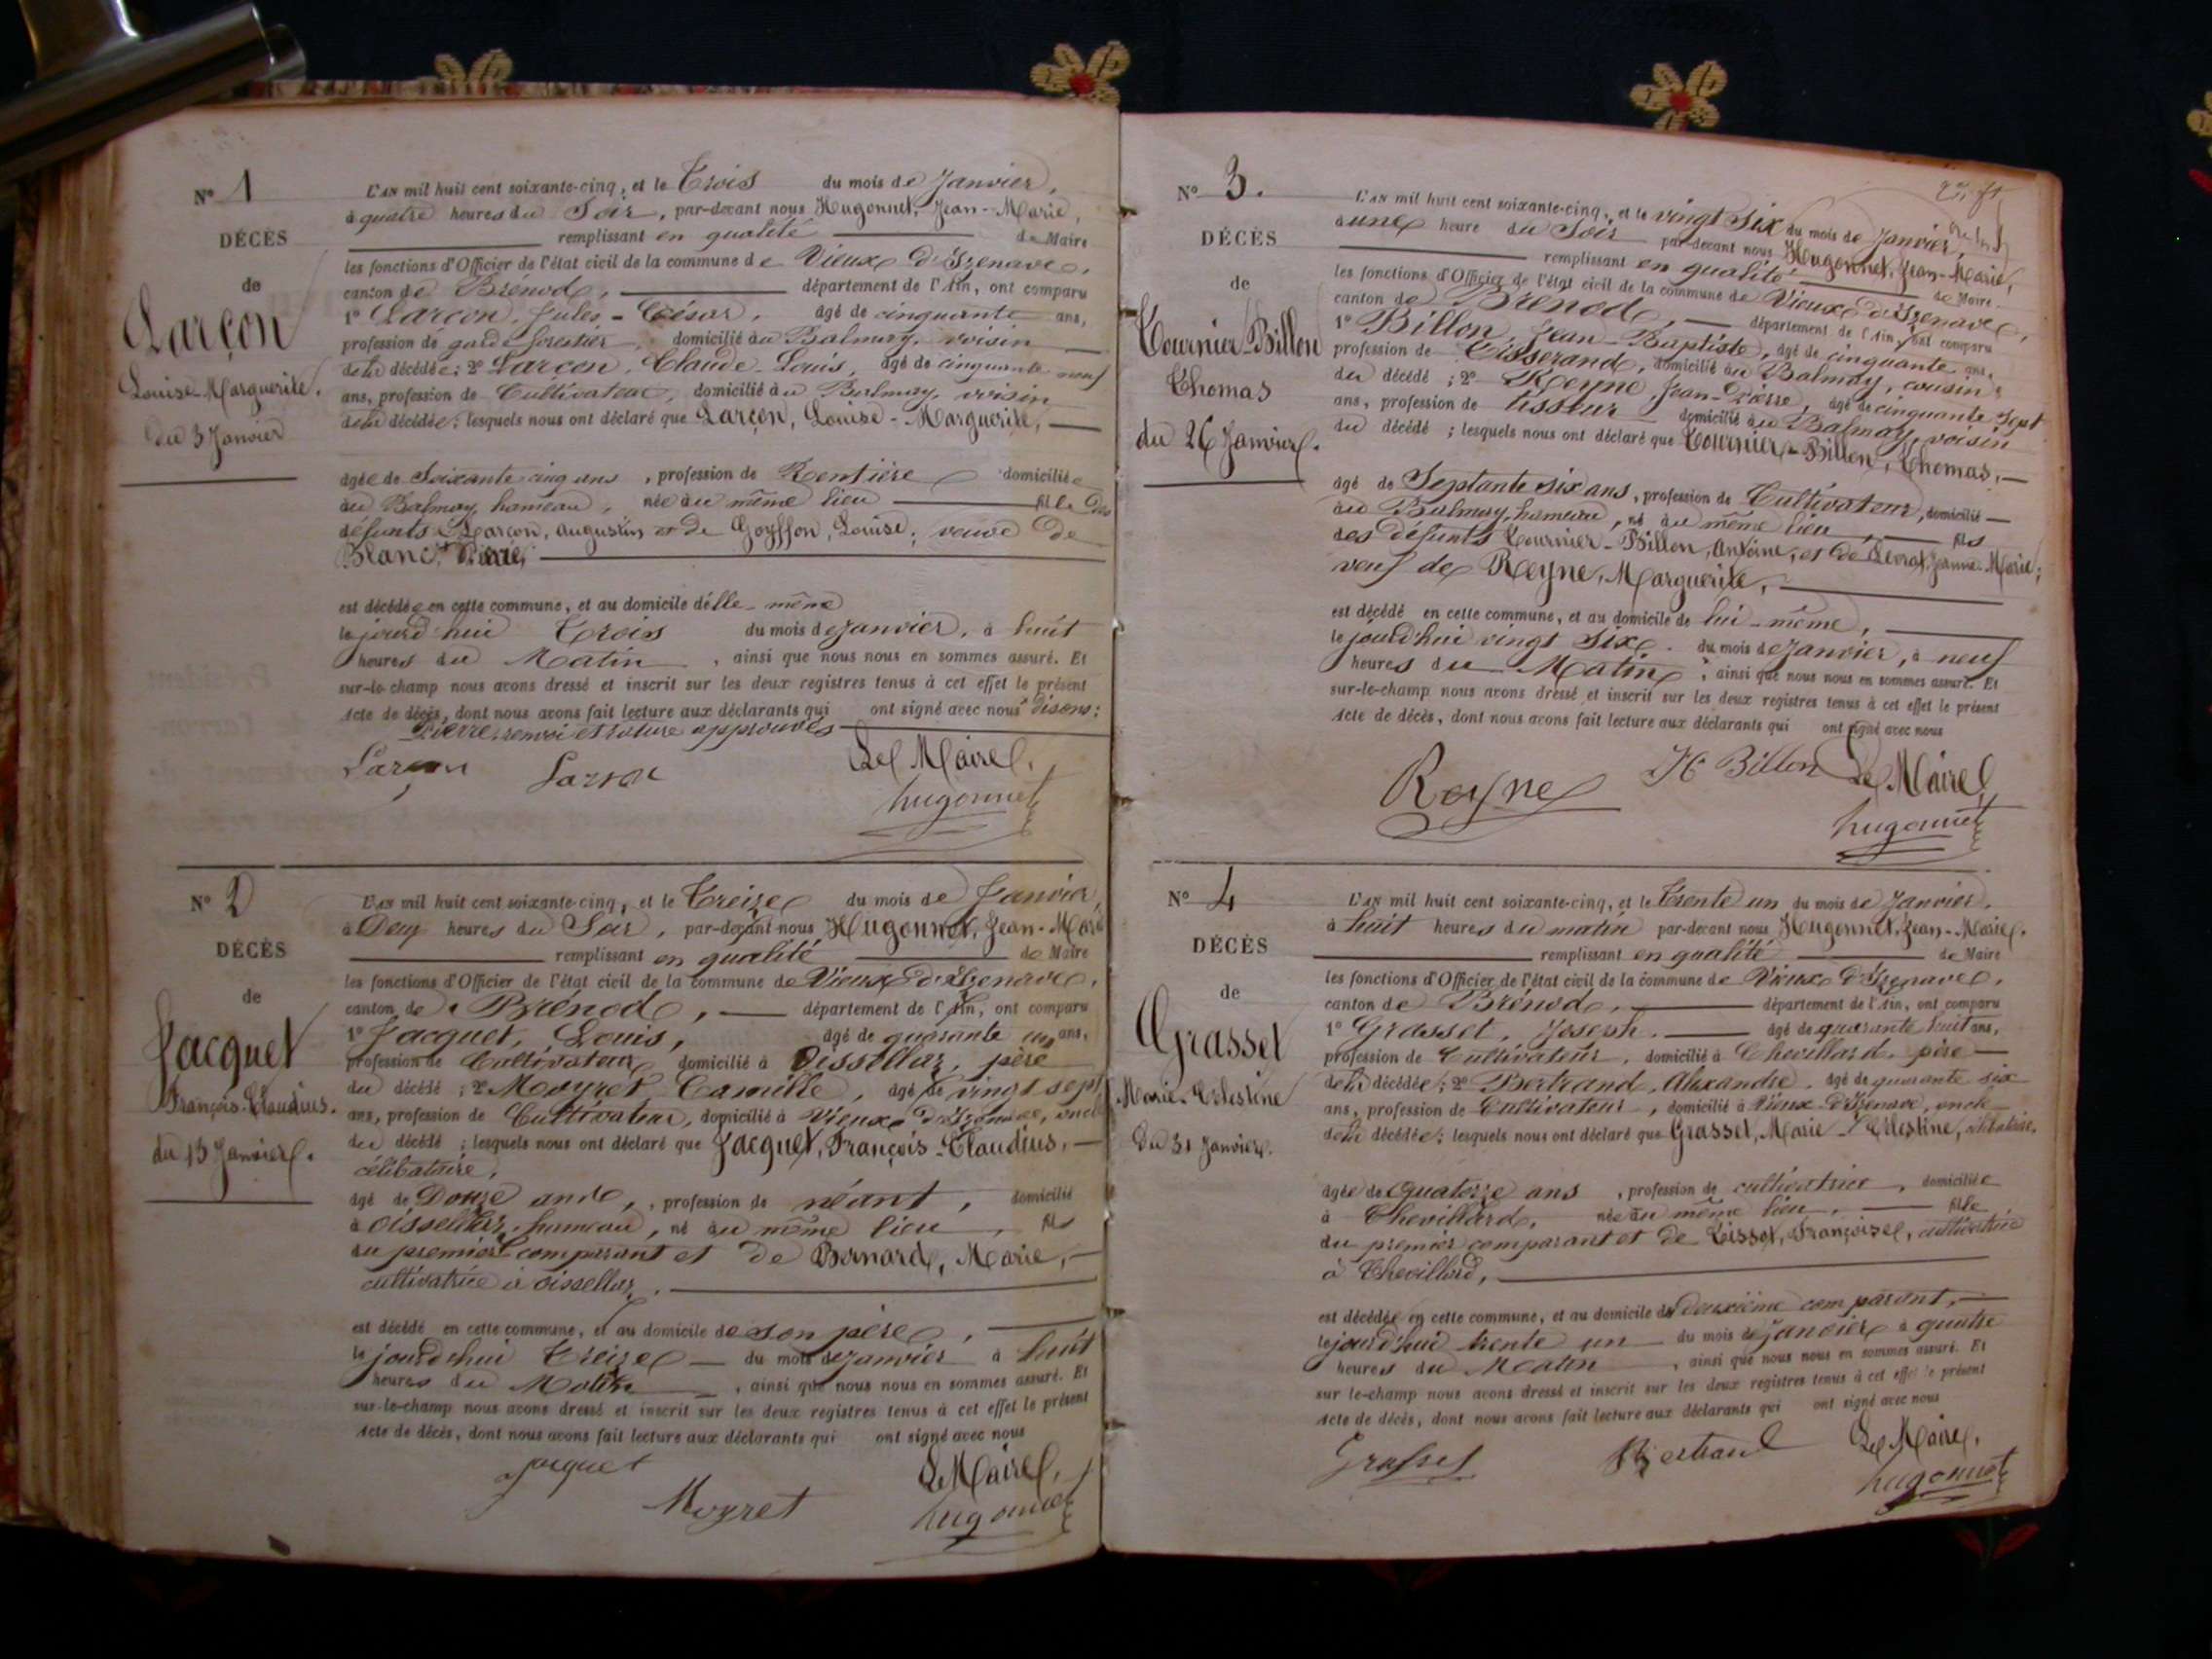 N° 1
DÉCÈS
de
Larçon
Louise-Marguerite.
du 3 Janvier
L'AN mil huit cent soixante-cinq, et le Trois du mois de Janvier,
à quatre heures du Soir, par-devant nous Hugonnet, Jean-Marie,
remplissant en qualité de Maire
les fonctions d'Officier de l'état civil de la commune de Vieux d'Izenave,
canton de Brénod, département de l'Ain, ont comparu
1° Larçon, Jules-César, âgé de cinquante ans,
profession de garde forestier, domicilié au Balmay, voisin
de la décédée; 2° Larçon, Claude-Louis, âgé de cinquante neuf
ans, profession de Cultivateur, domicilié au Balmay, voisin
de la décédée; lesquels nous ont déclaré que Larçon, Louise-Marguerite,
âgée de Soixante cinq ans, profession de Rentière domiciliée
au Balmay, hameau, née au même lieu fille des
défunts Larçon, Augustin et de Goyffon, Louise; veuve de
Blanc,
est décédée en cette commune, et au domicile d'elle-même
le jourd'hui Trois du mois de Janvier, à huit
heures du Matin, ainsi que nous nous en sommes assuré. Et
sur-le-champ nous avons dressé et inscrit sur les deux registres tenus à cet effet le présent
acte de décès, dont nous avons fait lecture aux déclarants qui ont signé avec nous disons:
Pierre, renvoi et rature approuvés
Larçon Larçon Le Maire,
hugonnet
N° 2
DÉCÈS
de
Jacquet
François-Claudius.
du 13 Janvier.
L'AN mil huit cent soixante-cinq, et le Treize du mois de Janvier,
à Deux heures du Soir, par-devant nous Hugonnet, Jean-Marie
remplissant en qualité de Maire
les fonctions d'Officier de l'état civil de la commune de Vieux d'Izenave,
canton de Brénod, département de l'Ain, ont comparu
1° Jacquet, Louis, âgé de quarante un ans,
profession de Cultivateur domicilié à Oissellaz, père
du décédé; 2° Moyret Camille, âgé de vingt sept
ans, profession de Cultivateur, domicilié à Vieux d'Izenave, oncle
du décédé; lesquels nous ont déclaré que Jacquet, François-Claudius,
célibataire,
âgé de Douze ans, profession de néant, domicilié
à Oissellaz, hameau, né au même lieu, fils
du premier comparant et de Bernard, Marie,
cultivatrice à Oissellaz.
est décédé en cette commune, et au domicile de son père,
le jourd'hui treize du mois de Janvier à huit
heures du Matin, ainsi que nous nous en sommes assuré. Et
sur-le-champ nous avons dressé et inscrit sur les deux registres tenus à cet effet le présent
acte de décès, dont nous avons fait lecture aux déclarants qui ont signé avec nous
Jacquet Moyret Le Maire,
hugonnet
N° 3.
DÉCÈS
de
Tournier-Billon
Thomas
du 26 Janvier.
L'AN mil huit cent soixante-cinq, et le vingt Six du mois de Janvier,
à une heure du Soir par-devant nous Hugonnet, Jean-Marie,
remplissant en qualité de Maire
les fonctions d'Officier de l'état civil de la commune de Vieux d'Izenave,
canton de Brénod, département de l'Ain, ont comparu
1° Billon, Jean-Baptiste, âgé de cinquante ans,
profession de Tisserand, domicilié au Balmay, cousin
du décédé; 2° Reyne, Jean-Pierre, âgé de cinquante Sept
ans, profession de tisseur domicilié au Balmay, voisin
du décédé; lesquels nous ont déclaré que Tournier-Billon, Thomas,
âgé de Septante six ans, profession de Cultivateur, domicilié
au Balmay, hameau, né au même lieu, fils
des défunts Tournier-Billon, Antoine, et de Levrat, Jeanne-Marie;
veuf de Reyne, Marguerite,
est décédé en cette commune, et au domicile de lui-même,
le jourd'hui vingt Six du mois de Janvier, à neuf
heures du Matin, ainsi que nous nous en sommes assuré. Et
sur-le-champ nous avons dressé et inscrit sur les deux registres tenus à cet effet le présent
acte de décès, dont nous avons fait lecture aux déclarants qui ont signé avec nous
Reyne Billon Le Maire,
hugonnet
N° 4
DÉCÈS
de
Grasset
Marie-Célestine
Du 31 Janvier.
L'AN mil huit cent soixante-cinq, et le trente un du mois de Janvier,
à huit heures du matin par-devant nous Hugonnet, Jean-Marie,
remplissant en qualité de Maire
les fonctions d'Officier de l'état civil de la commune de Vieux d'Izenave,
canton de Brénod, département de l'Ain, ont comparu
1° Grasset, Joseph, âgé de quarante huit ans,
profession de Cultivateur, domicilié à Chevillard, père
de la décédée; 2° Bertrand, Alexandre, âgé de quarante six
ans, profession de Cultivateur, domicilié à Vieux d'Izenave, oncle
de la décédée; lesquels nous ont déclaré que Grasset, Marie-Célestine, célibataire,
âgée de quatorze ans, profession de cultivatrice, domiciliée
à Chevillard, née au même lieu, fille
du premier comparant et de Tissot, Françoise, cultivatrice
à Chevillard,
est décédée en cette commune, et au domicile du deuxième comparant,
le jourd'hui trente un du mois de Janvier à quatre
heures du Matin, ainsi que nous nous en sommes assuré. Et
sur le-champ nous avons dressé et inscrit sur les deux registres tenus à cet effet le présent
acte de décès, dont nous avons fait lecture aux déclarants qui ont signé avec nous
Grasset Bertrand Le Maire,
hugonnet